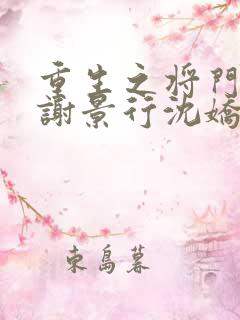 重生之将門
謝景行沈嬌
東島暮